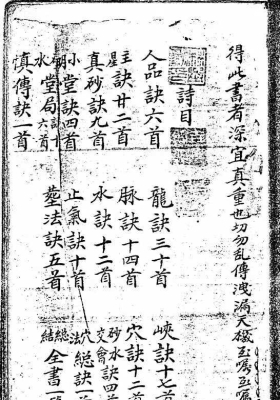 得此書者深宜真重也切勿乱傳洩漏天機至嘱至嘱
詩目
人品訣六首 龍訣三十首 峽訣十七首
主星訣廿二首 脉訣十四首 穴訣十二首
真砂訣九首 水訣十二首 砂水交會訣四首
小堂訣四首 止氣訣十首 穴法總訣一
堂局訣 水六首 塟法訣五首 總結全書一
慎傳訣一首